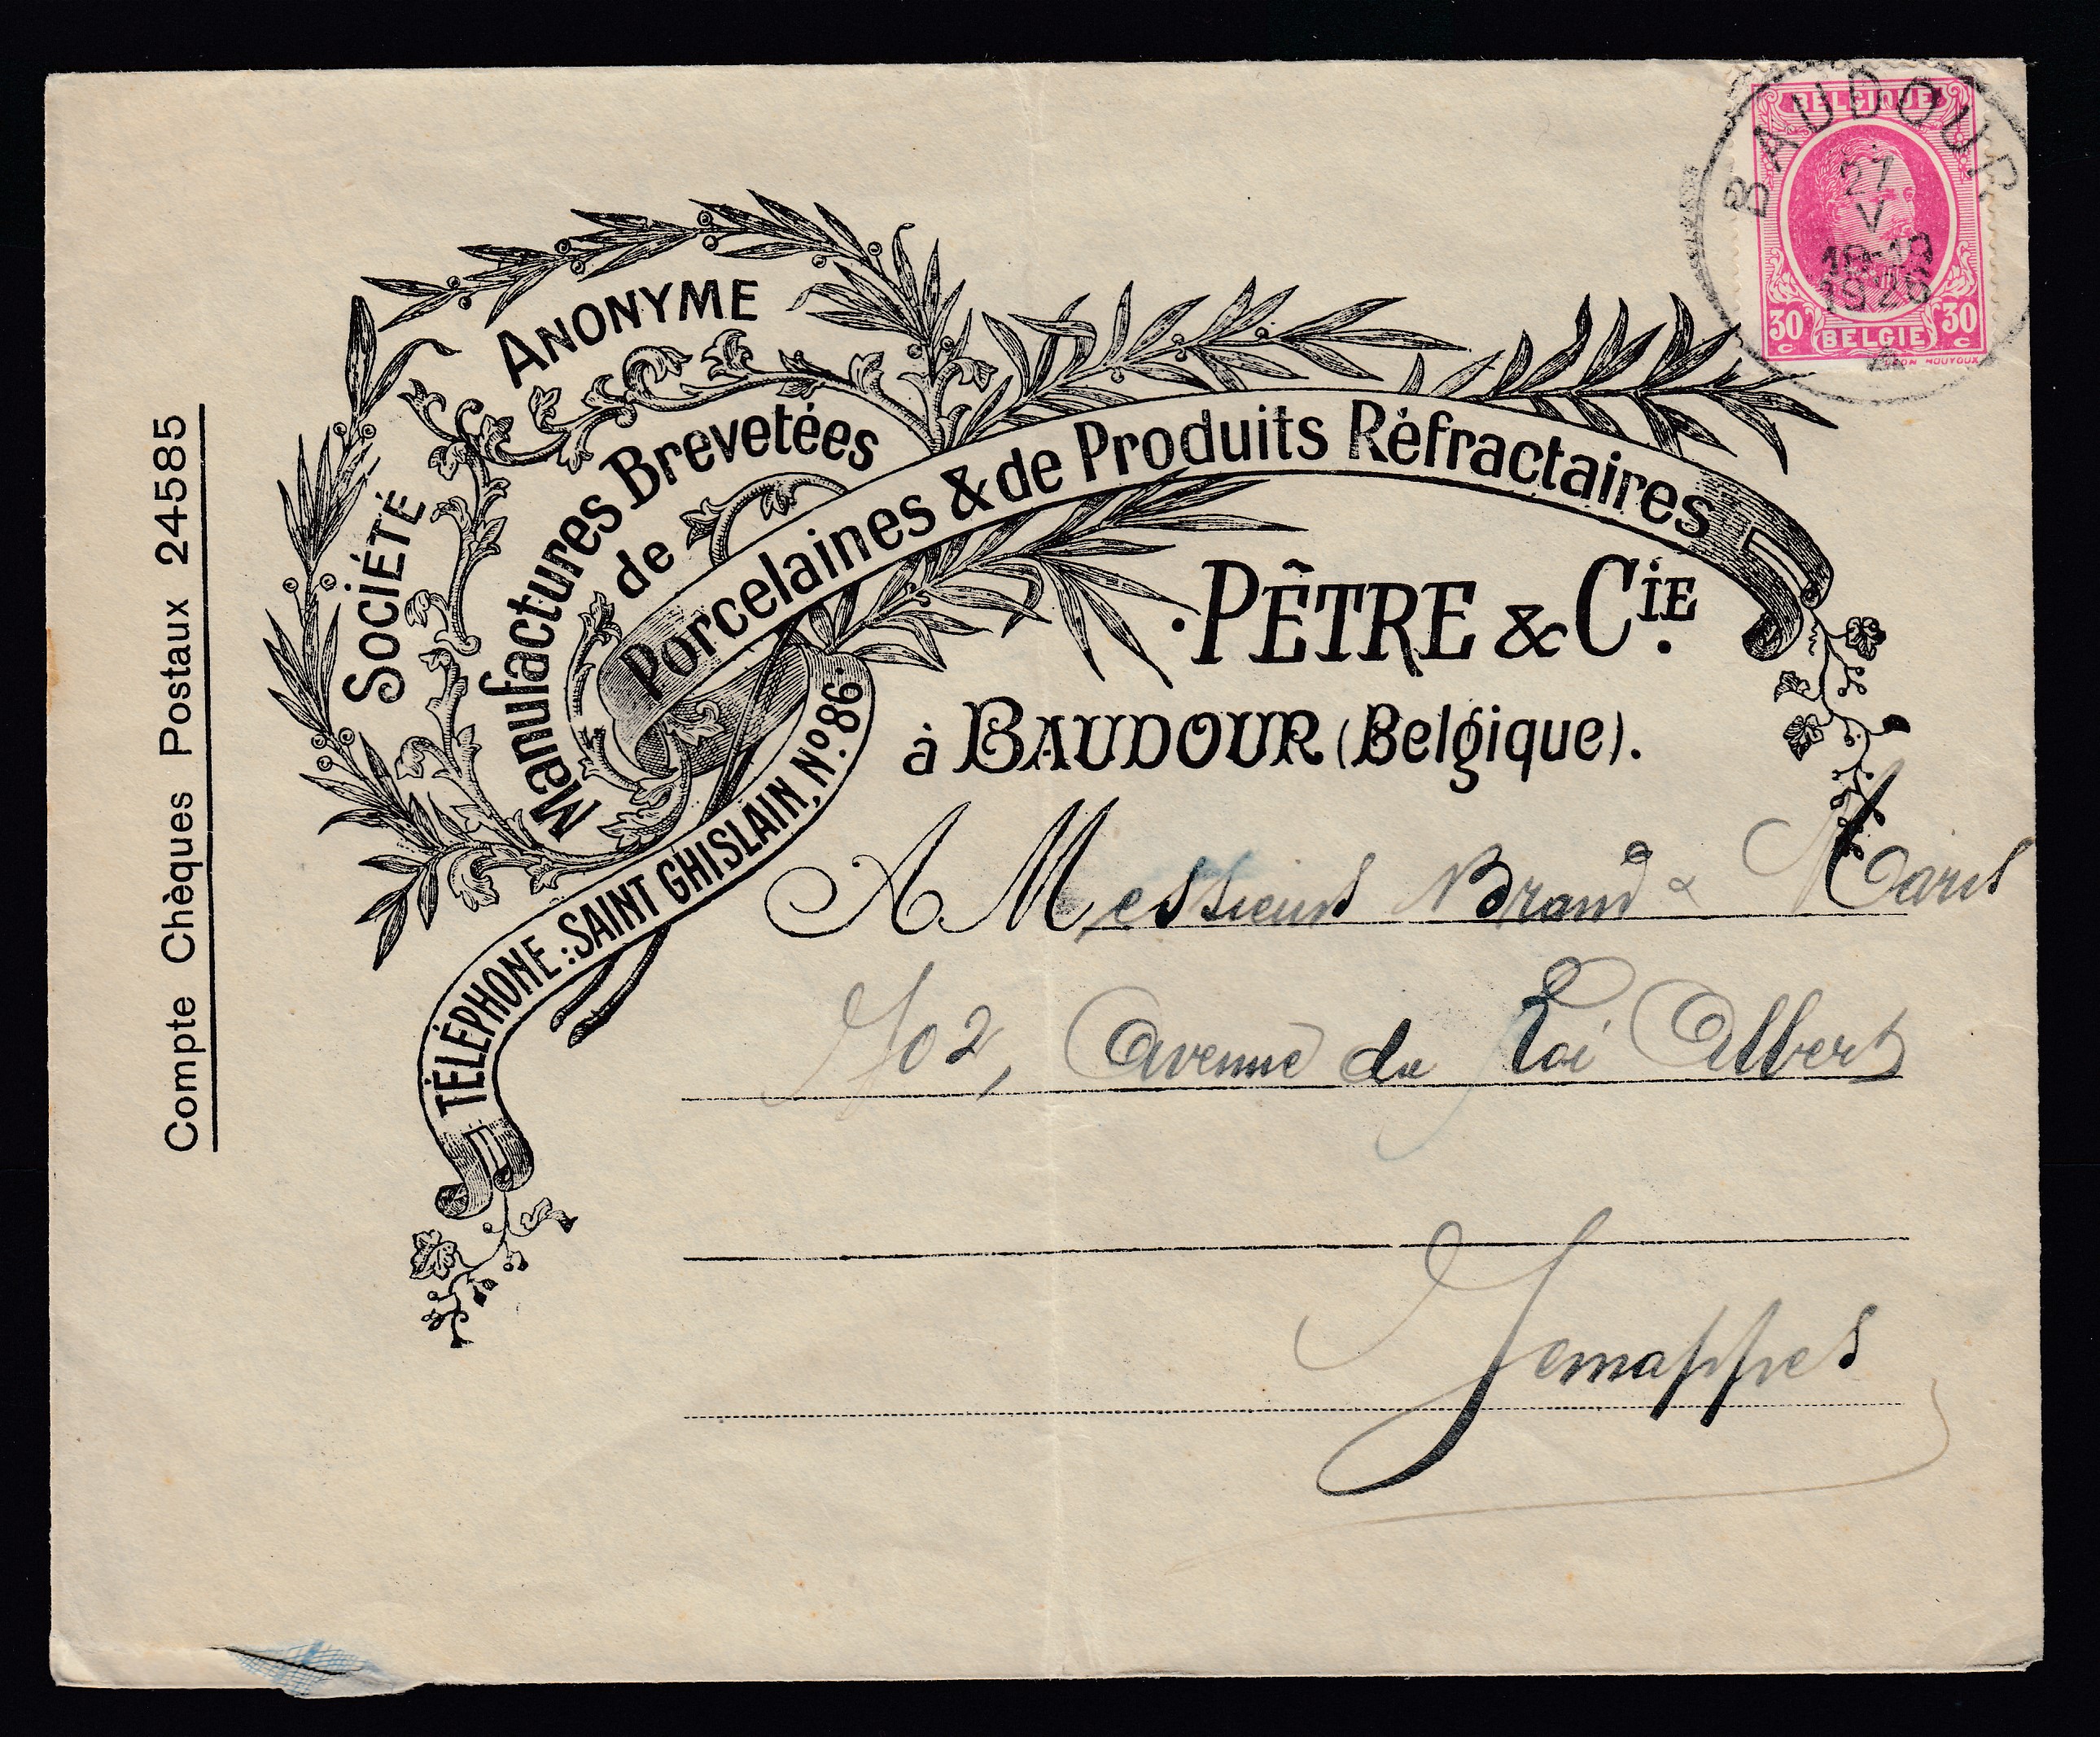 BELGIQUE
BAUDOUR
27
V
18-19
1926
A
30 c BELGIE 30 c
Compte Chèques Postaux 24585
SOCIÉTÉ ANONYME
Manufactures Brevetées
de
Porcelaines & de Produits Réfractaires
PÊTRE & CIE.
à BAUDOUR (Belgique).
TÉLÉPHONE: SAINT GHISLAIN, No. 86.
A Messieurs Brand &
102, Avenue du Roi Albert
Jemappes